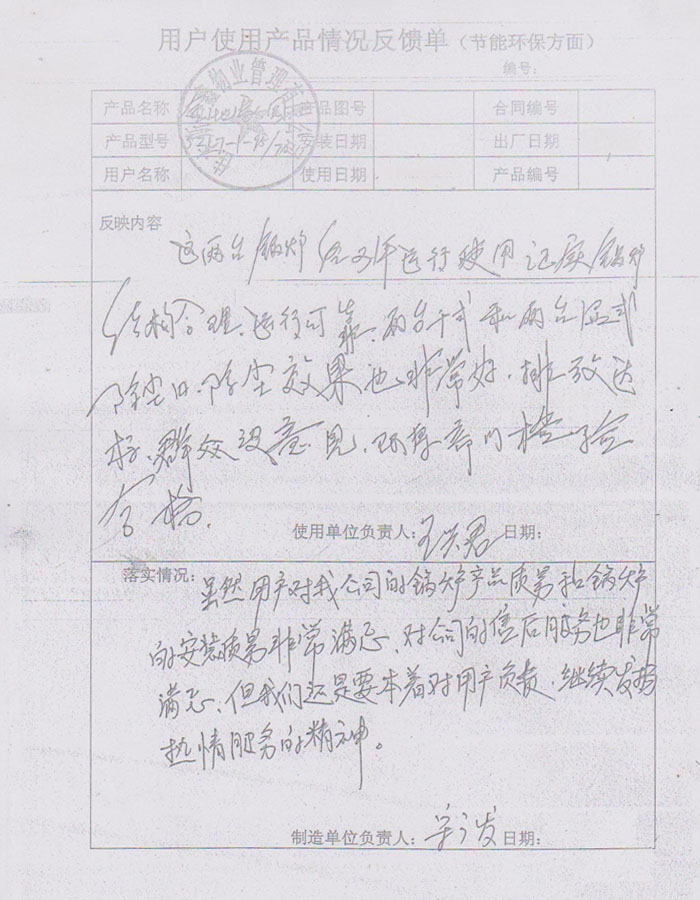 用户使用产品情况反馈单（节能环保方面）
编号：
产品名称 产品图号 合同编号
产品型号 安装日期 出厂日期
用户名称 使用日期 产品编号
物业管理有
反映内容
这两台锅炉 经 年运行使用 证实锅炉
结构合理、运行可靠、两台干式和两台湿式
除尘 除尘效果也非常好，排放达
标、群众没意见，环保部门检验
合格.
使用单位负责人： 日期：
落实情况：
虽然用户对我公司的锅炉产品质量和锅炉
的安装质量非常满意、对公司的售后服务也非常
满意、但我们还是要本着对用户负责、继续发扬
热情服务的精神。
制造单位负责人： 日期：